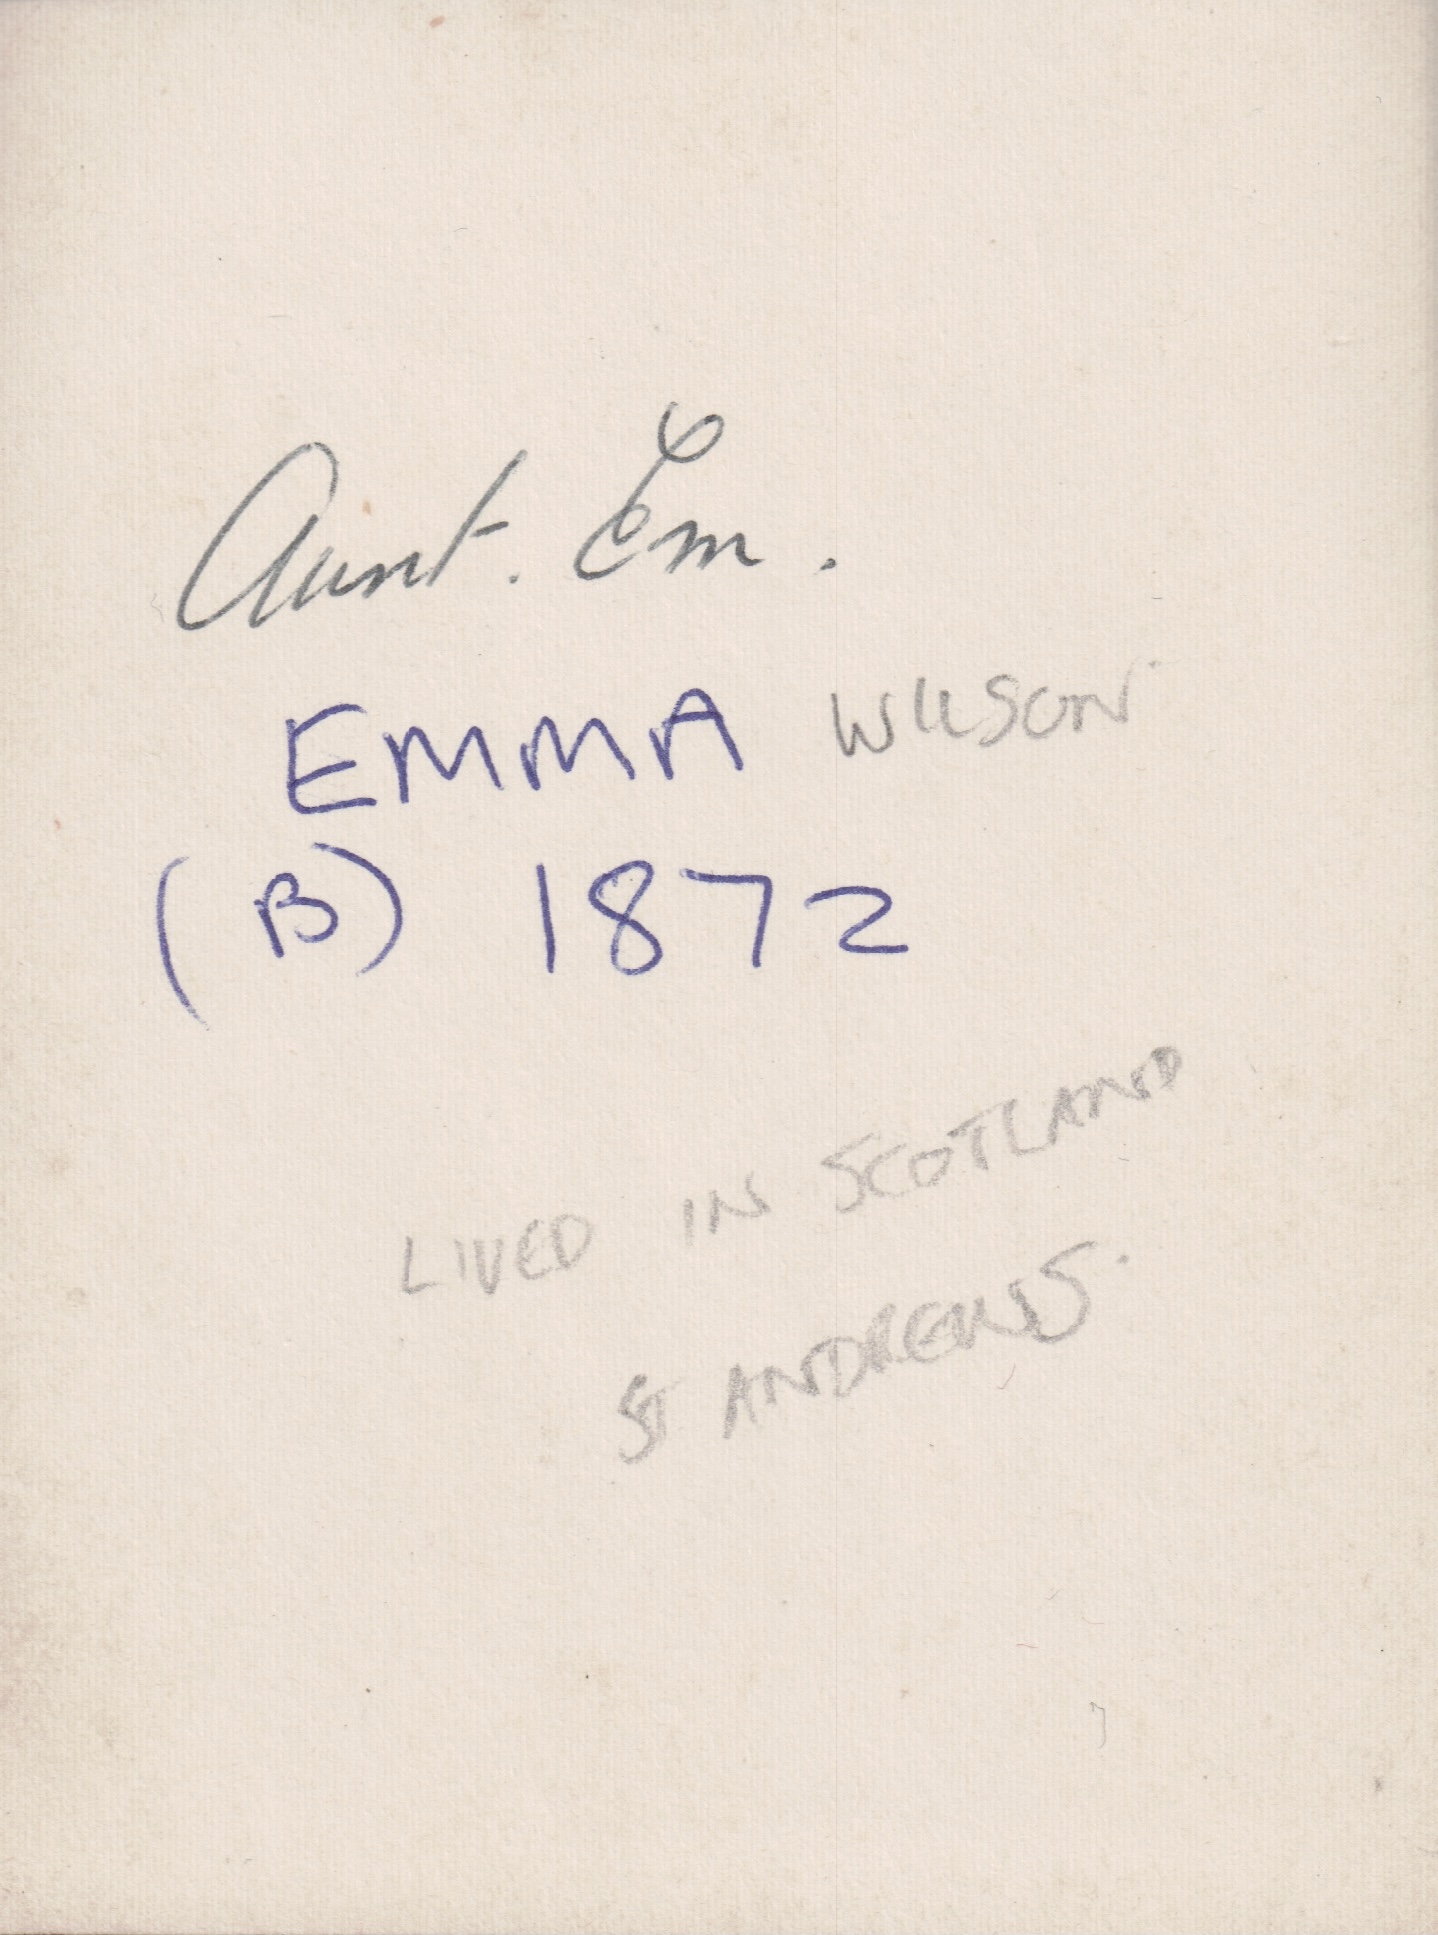 Aunt. Em.
EMMA WILSON
(B) 1872
LIVED IN SCOTLAND
ST ANDREWS.